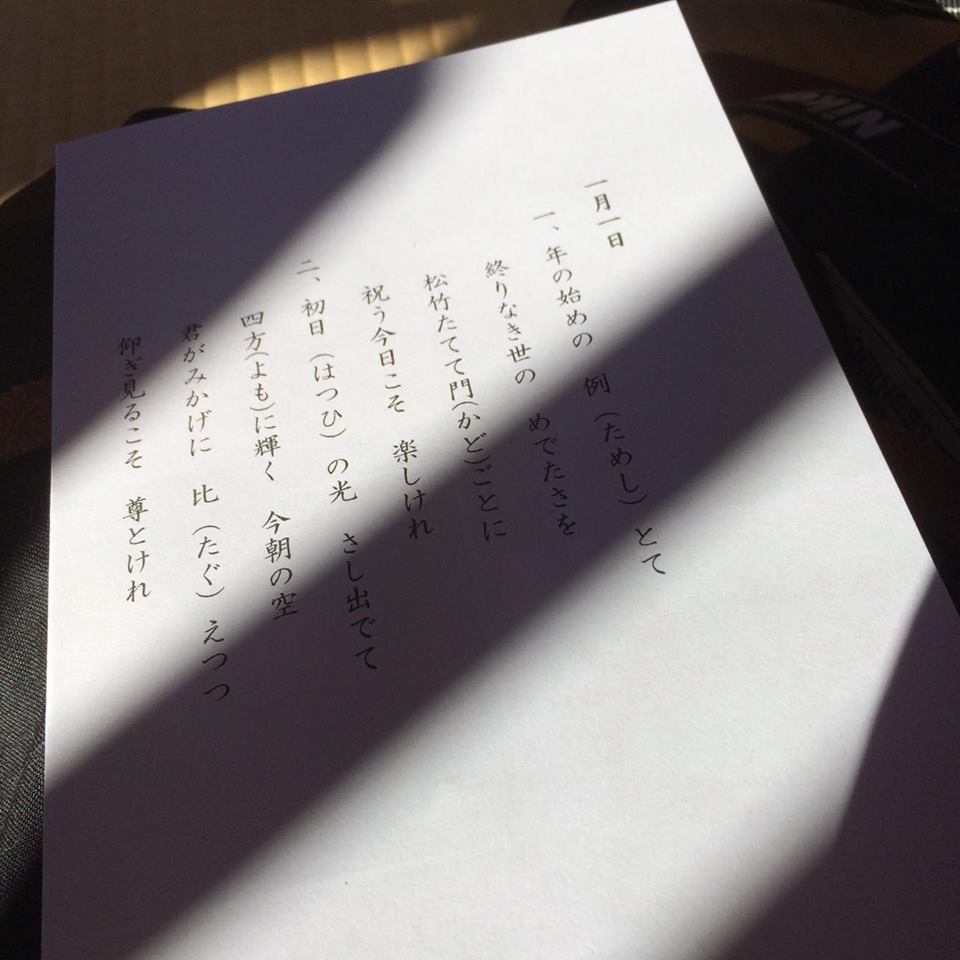 一月一日
一、年の始めの　例（ためし）とて
終りなき世の　めでたさを
松竹たてて門(かど)ごとに
祝う今日こそ　楽しけれ
二、初日（はつひ）の光　さし出でて
四方(よも)に輝く　今朝の空
君がみかげに　比（たぐ）えつつ
仰ぎ見るこそ　尊とけれ